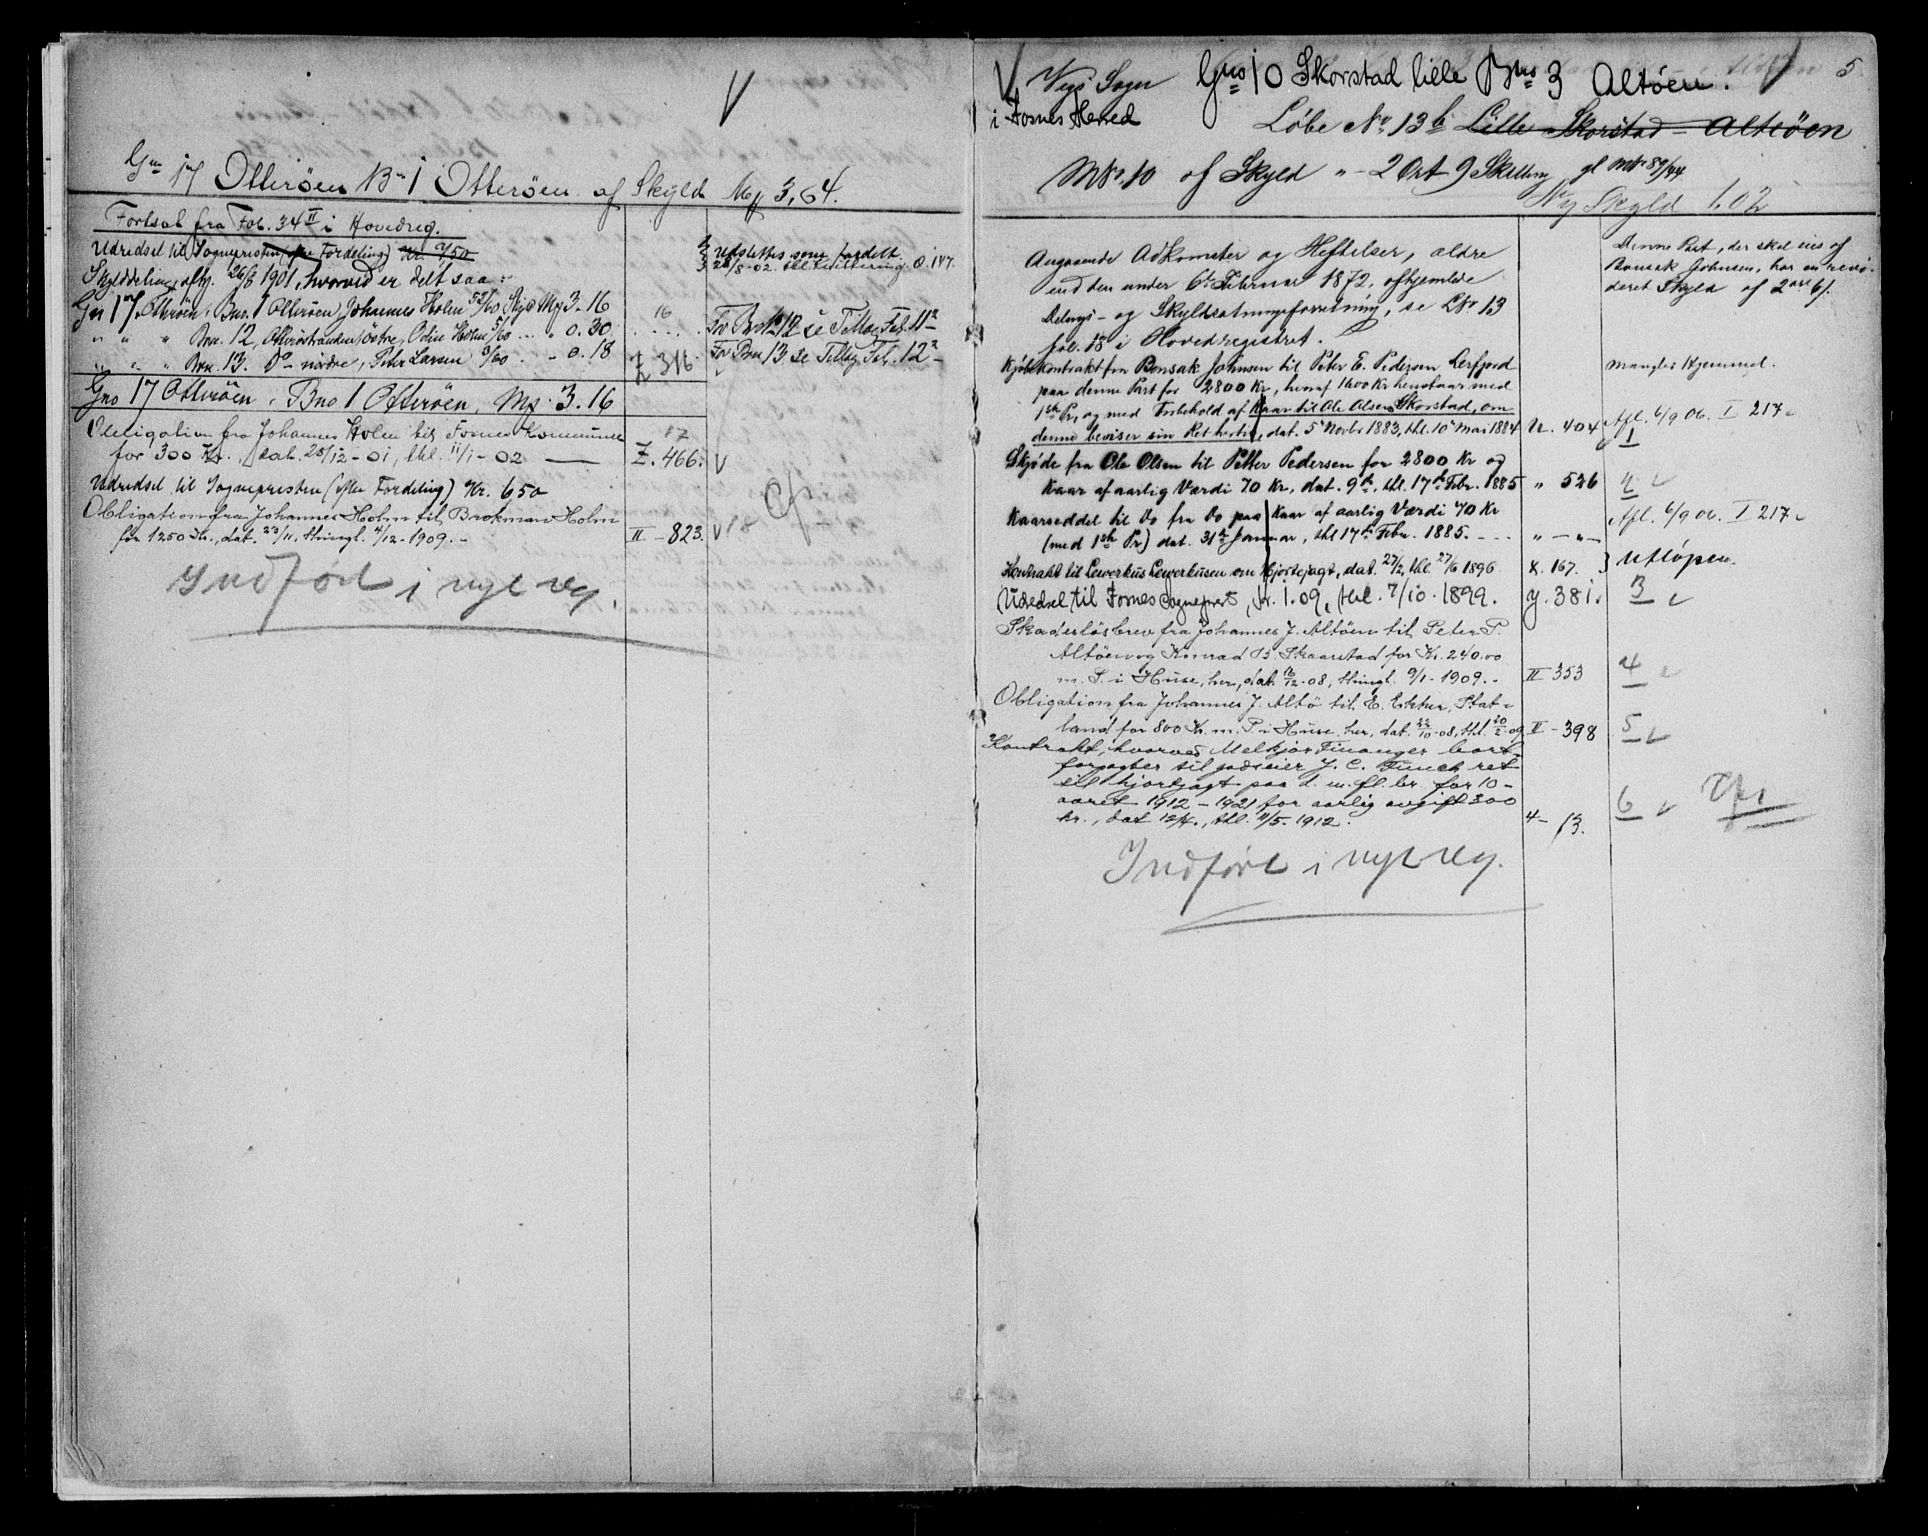 Gno 17 Otterøen Bno 1 Otterøen af Skyld Mk 3,64.
Fortsat fra Fol. 34 II i Hovedreg.
Udredsel til Sognepresten (efter Fordeling) Kr. 7,50
2/3 Udslettes som fordelt
28/8-02. til Kvittering. O. 147.
Skylddeling afh. 26/8 1901, hvorved er delt saa:
Gn 17. Otterøen, Bno. 1 Otterøen, Johannes Holm 52/60 Skyld Mk 3-16
" " " Bno. 12, Otterøstranden østre, Odin Holm 5/60 ... " 0.30. . . . . For Bno 12 se Tillæg Fol. 11²
" " " Bno. 13. Do nordre, Peter Larsen 3/60 . . " 0.18
16
Z 316
For Bno 13 se Tillæg Fol. 12²
Gno 17 Otterøen, Bno 1 Otterøen, Mk. 3.16
Obligation fra Johannes Holm til Fosnes Kommune
for 300 Kr., dat. 28/12-01, thl. 11/1-02
17
Z. 466. V
Udredsel til Sognepresten (efter Fordeling) Kr. 6,50
Obligation fra Johannes Holm til Brokman Holm
for 1250 Kr., dat. 23/11, thingl. 7/12-1909.-
II - 823. V 18
Indført i nyt reg.
5
V Vigs Sogn Gno 10 Skorstad lille Bno 3 Altøen.
i Fosnes Herred
Løbe No 13 b Lille Skorstad - Altøen
MNo. 10 af Skyld " - 2 Ort 9 Skilling gl MNo 89/94
Ny Skyld 1.02
Angaaende Adkomster og Heftelser, ældre
end den under 6te Februar 1872, afhjemlede
Delings- og Skyldsætningsforretning, se LNo 13
fol. 18 i Hovedregistret.
Denne Part, der skal eies af
Bonsak Johnsen, har en revi-
deret Skyld af
Kjøbekontrakt fra Bonsak Johnsen til Peter E. Pedersen Lerfjord
paa denne Part for 2800 Kr, hvoraf 1600 Kr henstaar med
1ste Pr, og med Forbehold af Kaar til Ole Olsen Skorstad, om
denne beviser sin Ret hertil, dat. 5 Novbr 1883, thl. 10 Mai 1884
U. 404
mangler Hjemmel.
Afl. 6/9 06. I 217.
1
Skjøde fra Ole Olsen til Petter Pedersen for 2800 Kr og
Kaar af aarlig Værdi 70 Kr, dat. 9de, thl. 17de Febr. 1885
" 526
2
Kaarseddel til Do fra Do paa Kaar af aarlig Værdi 70 Kr
(med 1ste Pr) dat. 31te Januar, thl 17de Febr. 1885. - - -
" - " -
Afl. 6/9 06. I 217.
Kontrakt til Lewerkus Lewerkusen om Hjortejagt, dat. 27/2, thl. 27/6 1896
X. 167. } Utløpen.
Udredsel til Fosnes Sogneprest, Kr. 1.09, thl. 7/10-1899.
Y. 381.
3
Skadesløsbrev fra Johannes J. Altøen til Peter P.
Altøen og Konrad B. Skaarstad for Kr. 240.00
m. P. i Huse, her, dat. 16/12-08, thingl. 9/1-1909.-
II 353
4
Obligation fra Johannes J. Altø til E. Ekker, Stat-
land for 800 Kr. m. P. i Huse, her, dat. 22/10-08, thl. 20/2-09
II - 398
5
Kontrakt, hvorved Melkjor Finanger bort-
forpagter til godseier J. C. Finch ret
til hjortejagt paa d. m. fl. br. for 10-
aaret 1912 - 1921 for aarlig avgift 300
kr., dat 12/4., thl. 11/5. 1912.
4 - 13.
6
Indført i nyt reg.